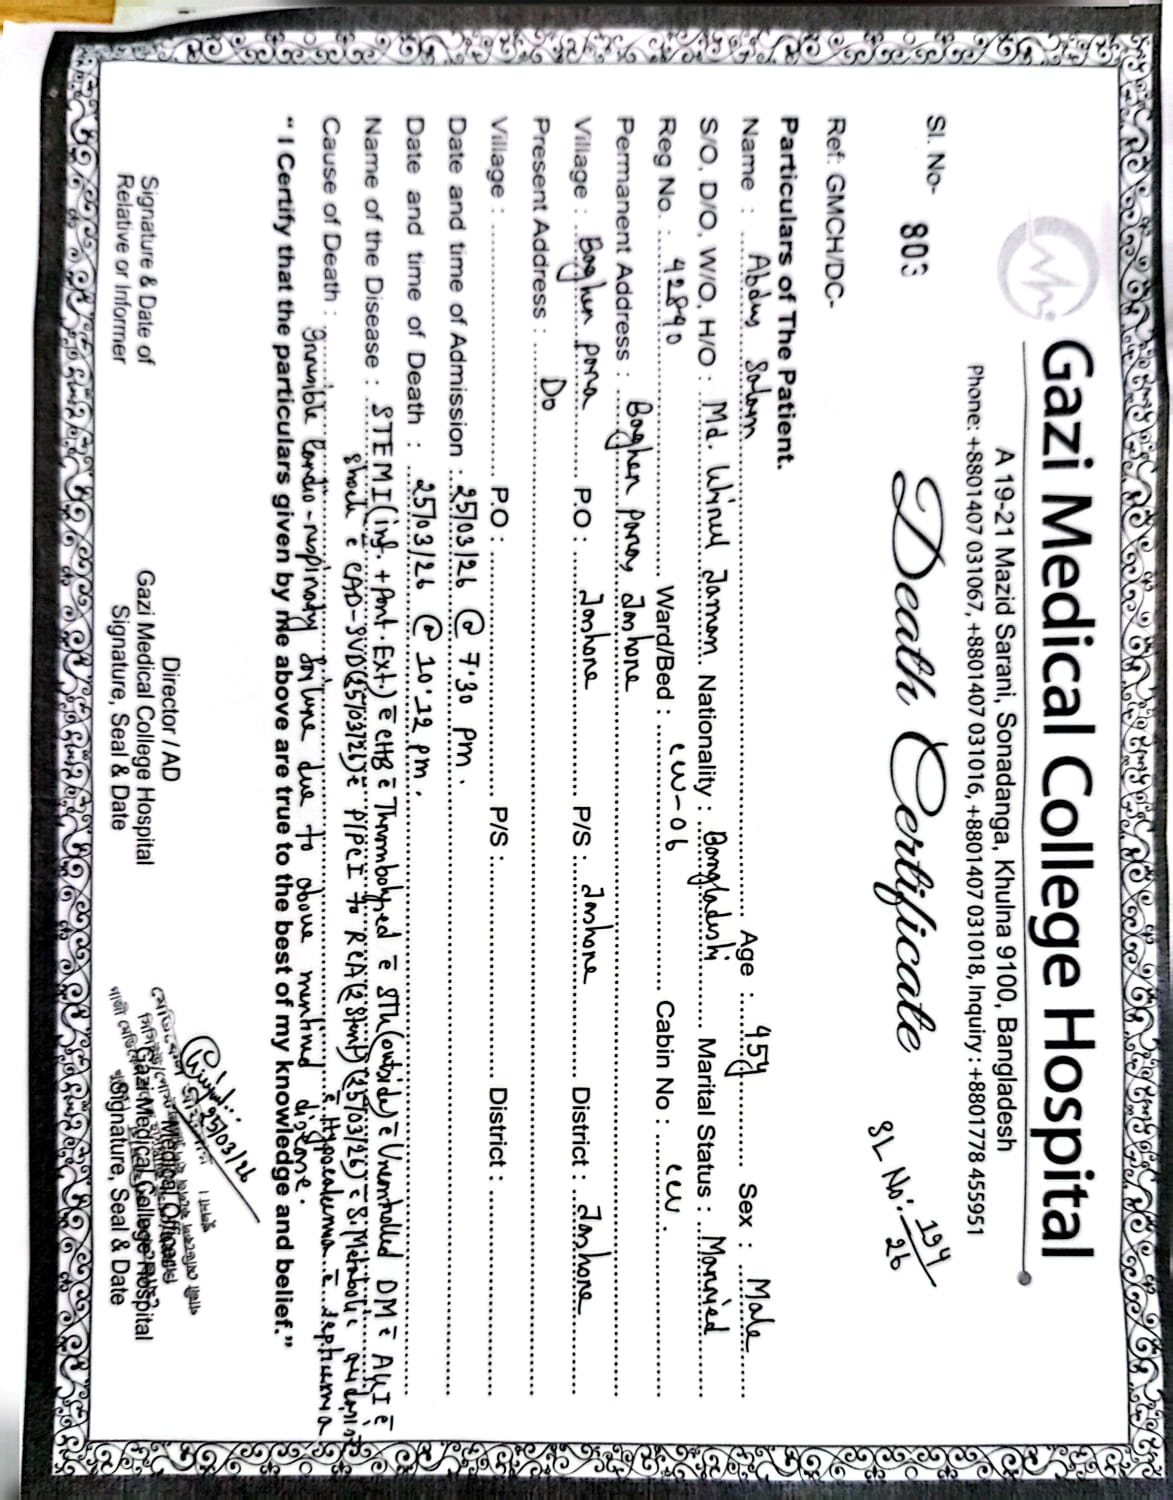 Gazi Medical College Hospital
A 19-21 Mazid Sarani, Sonadanga, Khulna 9100, Bangladesh
Phone: +8801407 031067, +8801407 031016, +8801407 031018, Inquiry : +8801778 455951
Death Certificate
Sl. No- 803
SL No: 194/26
Ref: GMCH/DC-
Particulars of The Patient.
Name : Abdus Salam Age : 45y Sex : Male
S/O, D/O, W/O, H/O : Md. Nationality : Bangladeshi Marital Status : Married
Reg No. : 42890 Ward/Bed : CCU-06 Cabin No : CCU.
Permanent Address : Baghen para, Jashore
Village : Baghen para P.O : Jashore P/S : Jashore District : Jashore
Present Address : Do
Village : P.O : P/S : District :
Date and time of Admission : 25/03/26 @ 7:30 pm.
Date and time of Death : 25/03/26 @ 10:12 pm.
Name of the Disease : STEMI (inf. + Ext.) c̄ CHB c̄ Thrombolysed c̄ STK (outside) c̄ Uncontrolled DM c̄ AKI c̄
Shock c̄ CAD-SVD (25/03/26) c̄ PPCI to RCA (2 stent) (25/03/26) c̄ S. Metabolic acidosis
c̄ Hypocalcemia c̄
Cause of Death : Irreversible Cardio-respiratory failure due to above mentioned disease.
“ I Certify that the particulars given by me above are true to the best of my knowledge and belief.”
25/03/26
Signature & Date of
Relative or Informer
Director / AD
Gazi Medical College Hospital
Signature, Seal & Date
Medical Officer
Gazi Medical College Hospital
Signature, Seal & Date